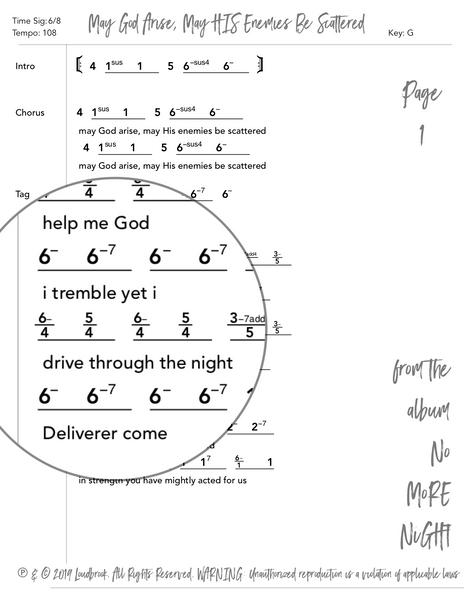 Time Sig: 6/8
Tempo: 108
May God Arise, May HIS Enemies Be Scattered
Key: G
Intro [ 4 1sus 1 5 6-sus4 6- ]
Chorus 4 1sus 1 5 6-sus4 6-
may God arise, may His enemies be scattered
4 1sus 1 5 6-sus4 6-
may God arise, may His enemies be scattered
Page
1
Tag 4 4 6-7 6-
help me God
6- 6-7 6- 6-7 3-/5
i tremble yet i
6-/4 5/4 6-/4 5/4 3-7add/5 3-/5
drive through the night
6- 6-7 6- 6-7
Deliverer come
2-7
17 6-/1 1
in strength you have mightly acted for us
from the
album
No
MoRE
NiGHT
℗ & © 2019 Loudbrook. All Rights Reserved. WARNING: Unauthorized reproduction is a violation of applicable laws